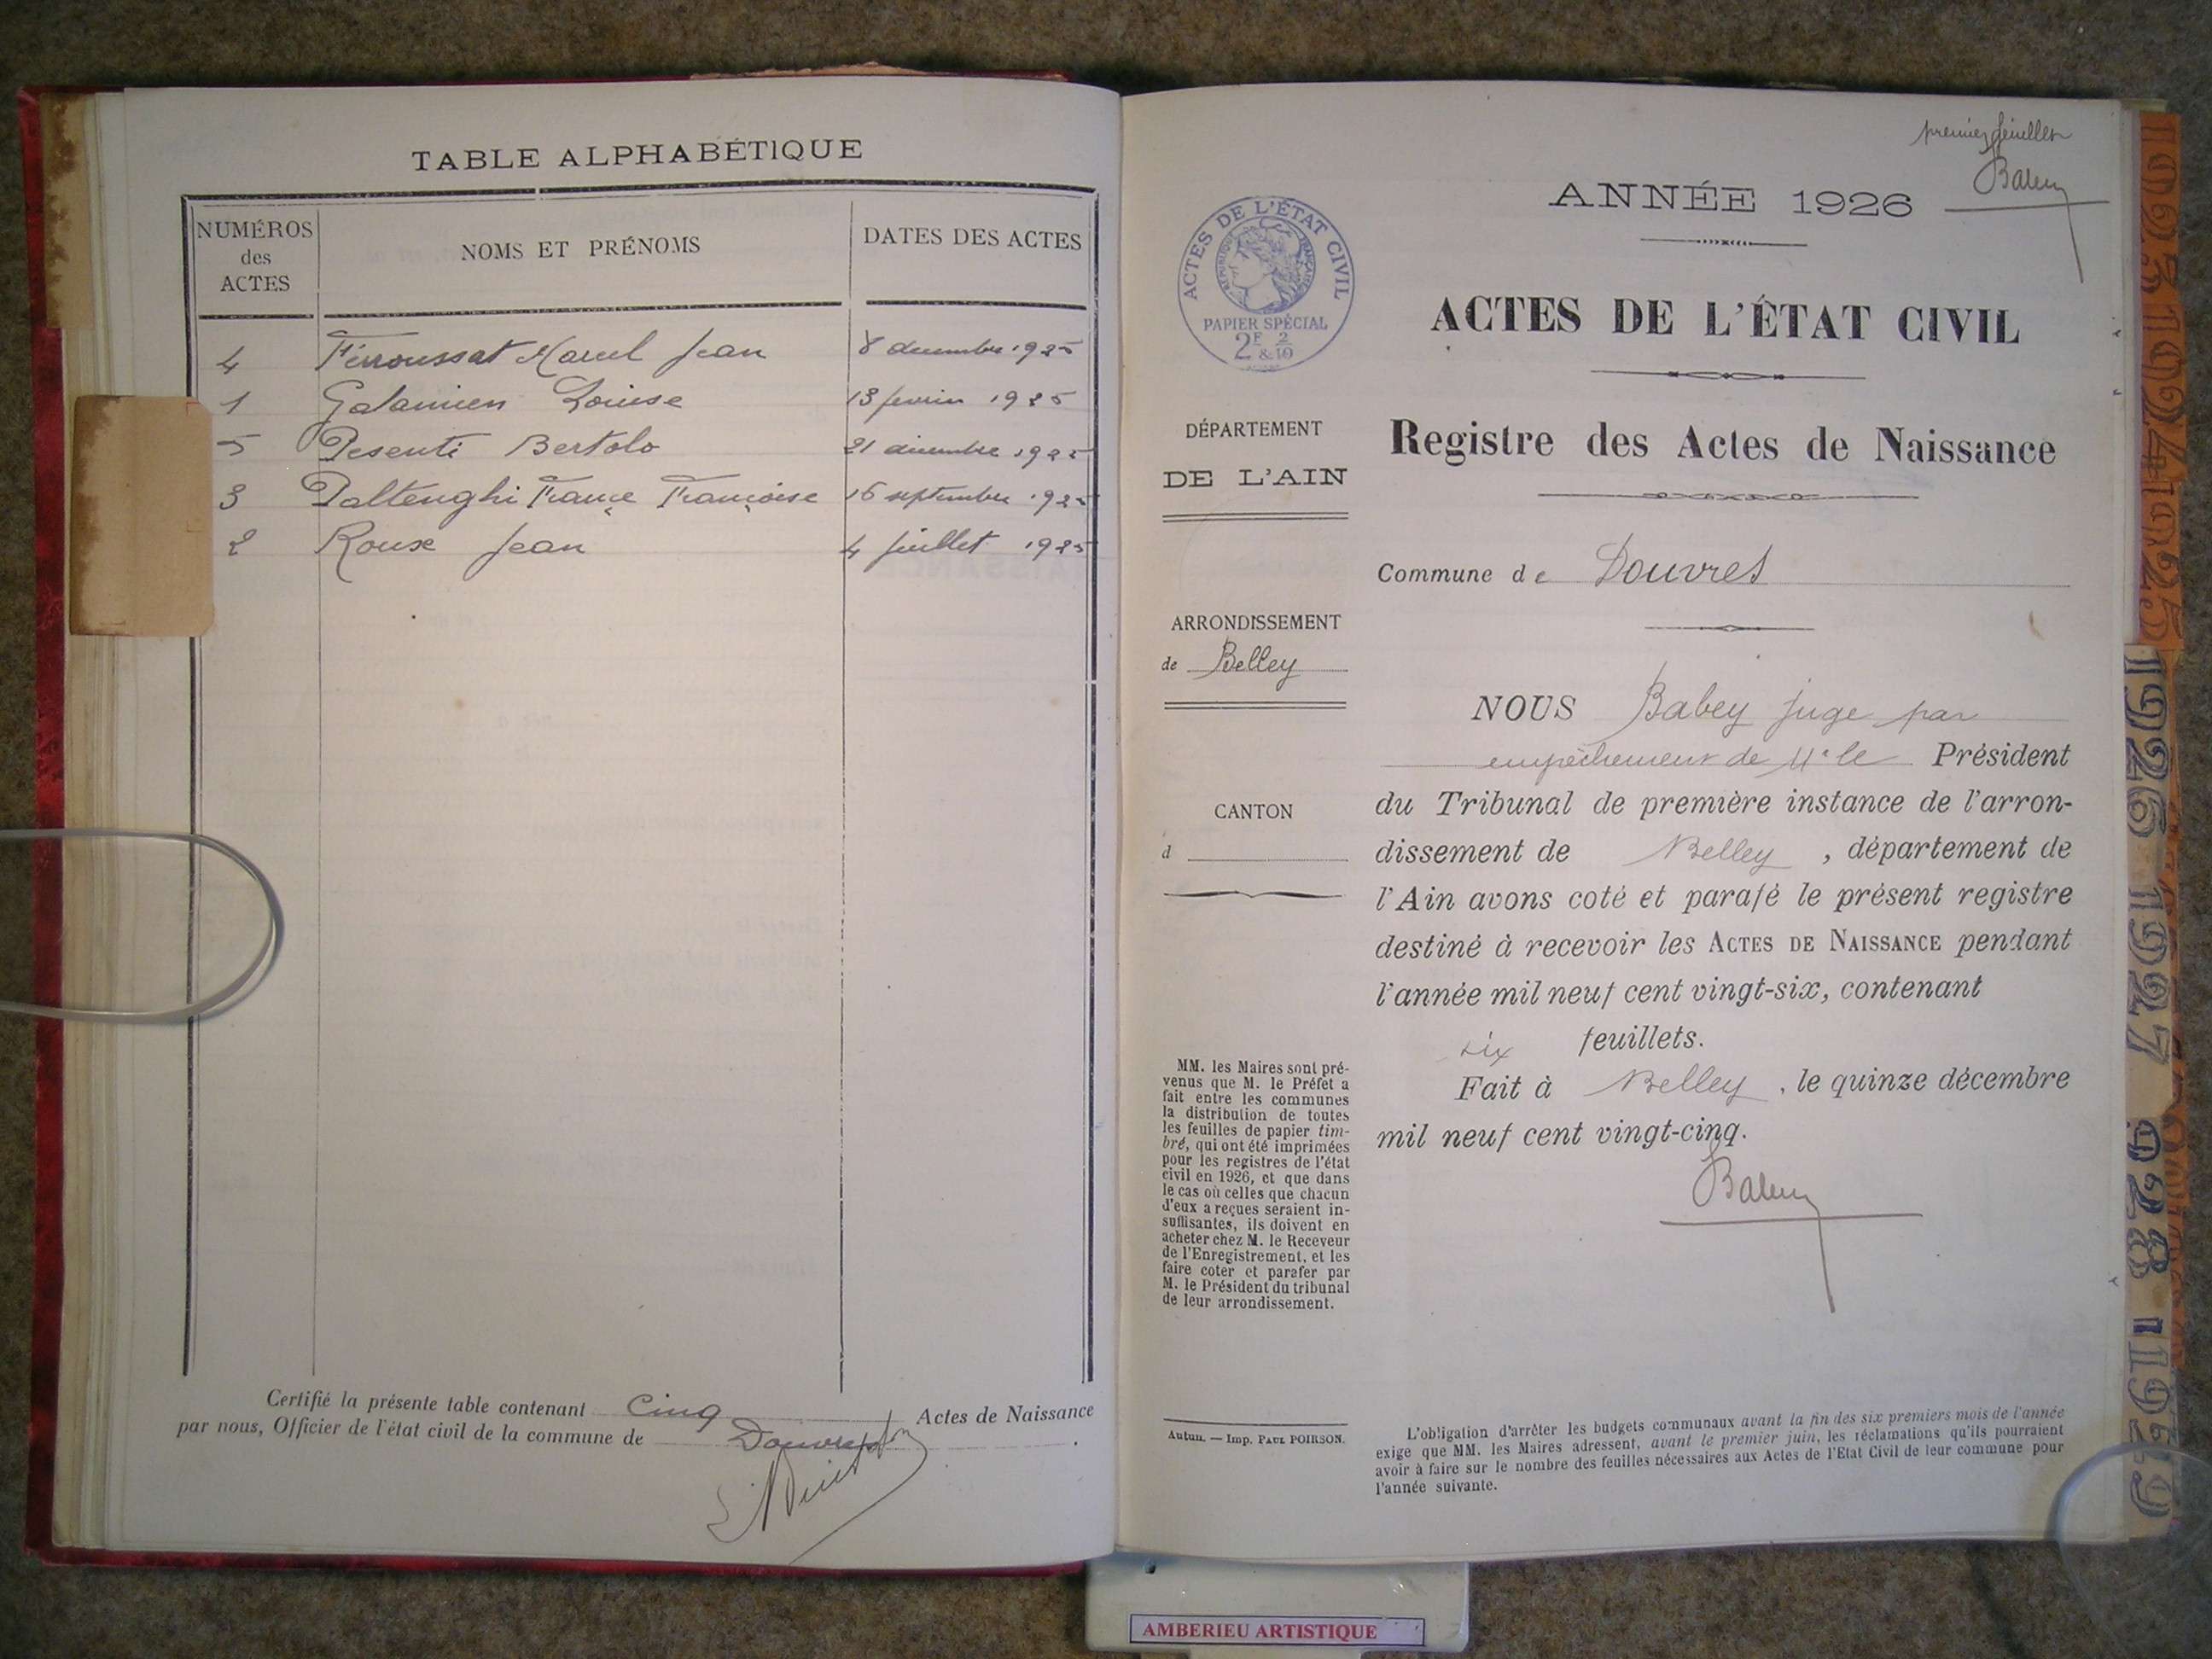 TABLE ALPHABÉTIQUE
NUMÉROS des ACTES
NOMS ET PRÉNOMS
DATES DES ACTES
4 Ferroussat Marcel Jean 8 decembre 1925
1 Galamien Louise 13 fevrier 1925
5 Pesenti Bertolo 21 décembre 1925
3 Paltenghi France Françoise 16 septembre 1925
2 Roux Jean 4 juillet 1925
Certifié la présente table contenant Cinq Actes de Naissance
par nous, Officier de l'état civil de la commune de Douvres
premier feuillet
Babey
ANNÉE 1926
ACTES DE L'ÉTAT CIVIL
RÉPUBLIQUE FRANÇAISE
PAPIER SPÉCIAL
2F 2/10
&
ACTES DE L'ÉTAT CIVIL
Registre des Actes de Naissance
DÉPARTEMENT
DE L'AIN
Commune de Douvres
ARRONDISSEMENT
de Belley
CANTON
d
NOUS Babey juge par
empêchement de Mr le Président
du Tribunal de première instance de l'arron-
dissement de Belley, département de
l'Ain avons coté et parafé le présent registre
destiné à recevoir les ACTES DE NAISSANCE pendant
l'année mil neuf cent vingt-six, contenant
six feuillets.
Fait à Belley, le quinze décembre
mil neuf cent vingt-cinq.
Babey
MM. les Maires sont pré-
venus que M. le Préfet a
fait entre les communes
la distribution de toutes
les feuilles de papier tim-
bré, qui ont été imprimées
pour les registres de l'état
civil en 1926, et que dans
le cas où celles que chacun
d'eux a reçues seraient in-
suffisantes, ils doivent en
acheter chez M. le Receveur
de l'Enregistrement, et les
faire coter et parafer par
M. le Président du tribunal
de leur arrondissement.
Autun. — Imp. PAUL POIRSON.
L'obligation d'arrêter les budgets communaux avant la fin des six premiers mois de l'année
exige que MM. les Maires adressent, avant le premier juin, les réclamations qu'ils pourraient
avoir à faire sur le nombre des feuilles nécessaires aux Actes de l'Etat Civil de leur commune pour
l'année suivante.
1923
1924
1925
1926
1927
928
1929
AMBERIEU ARTISTIQUE